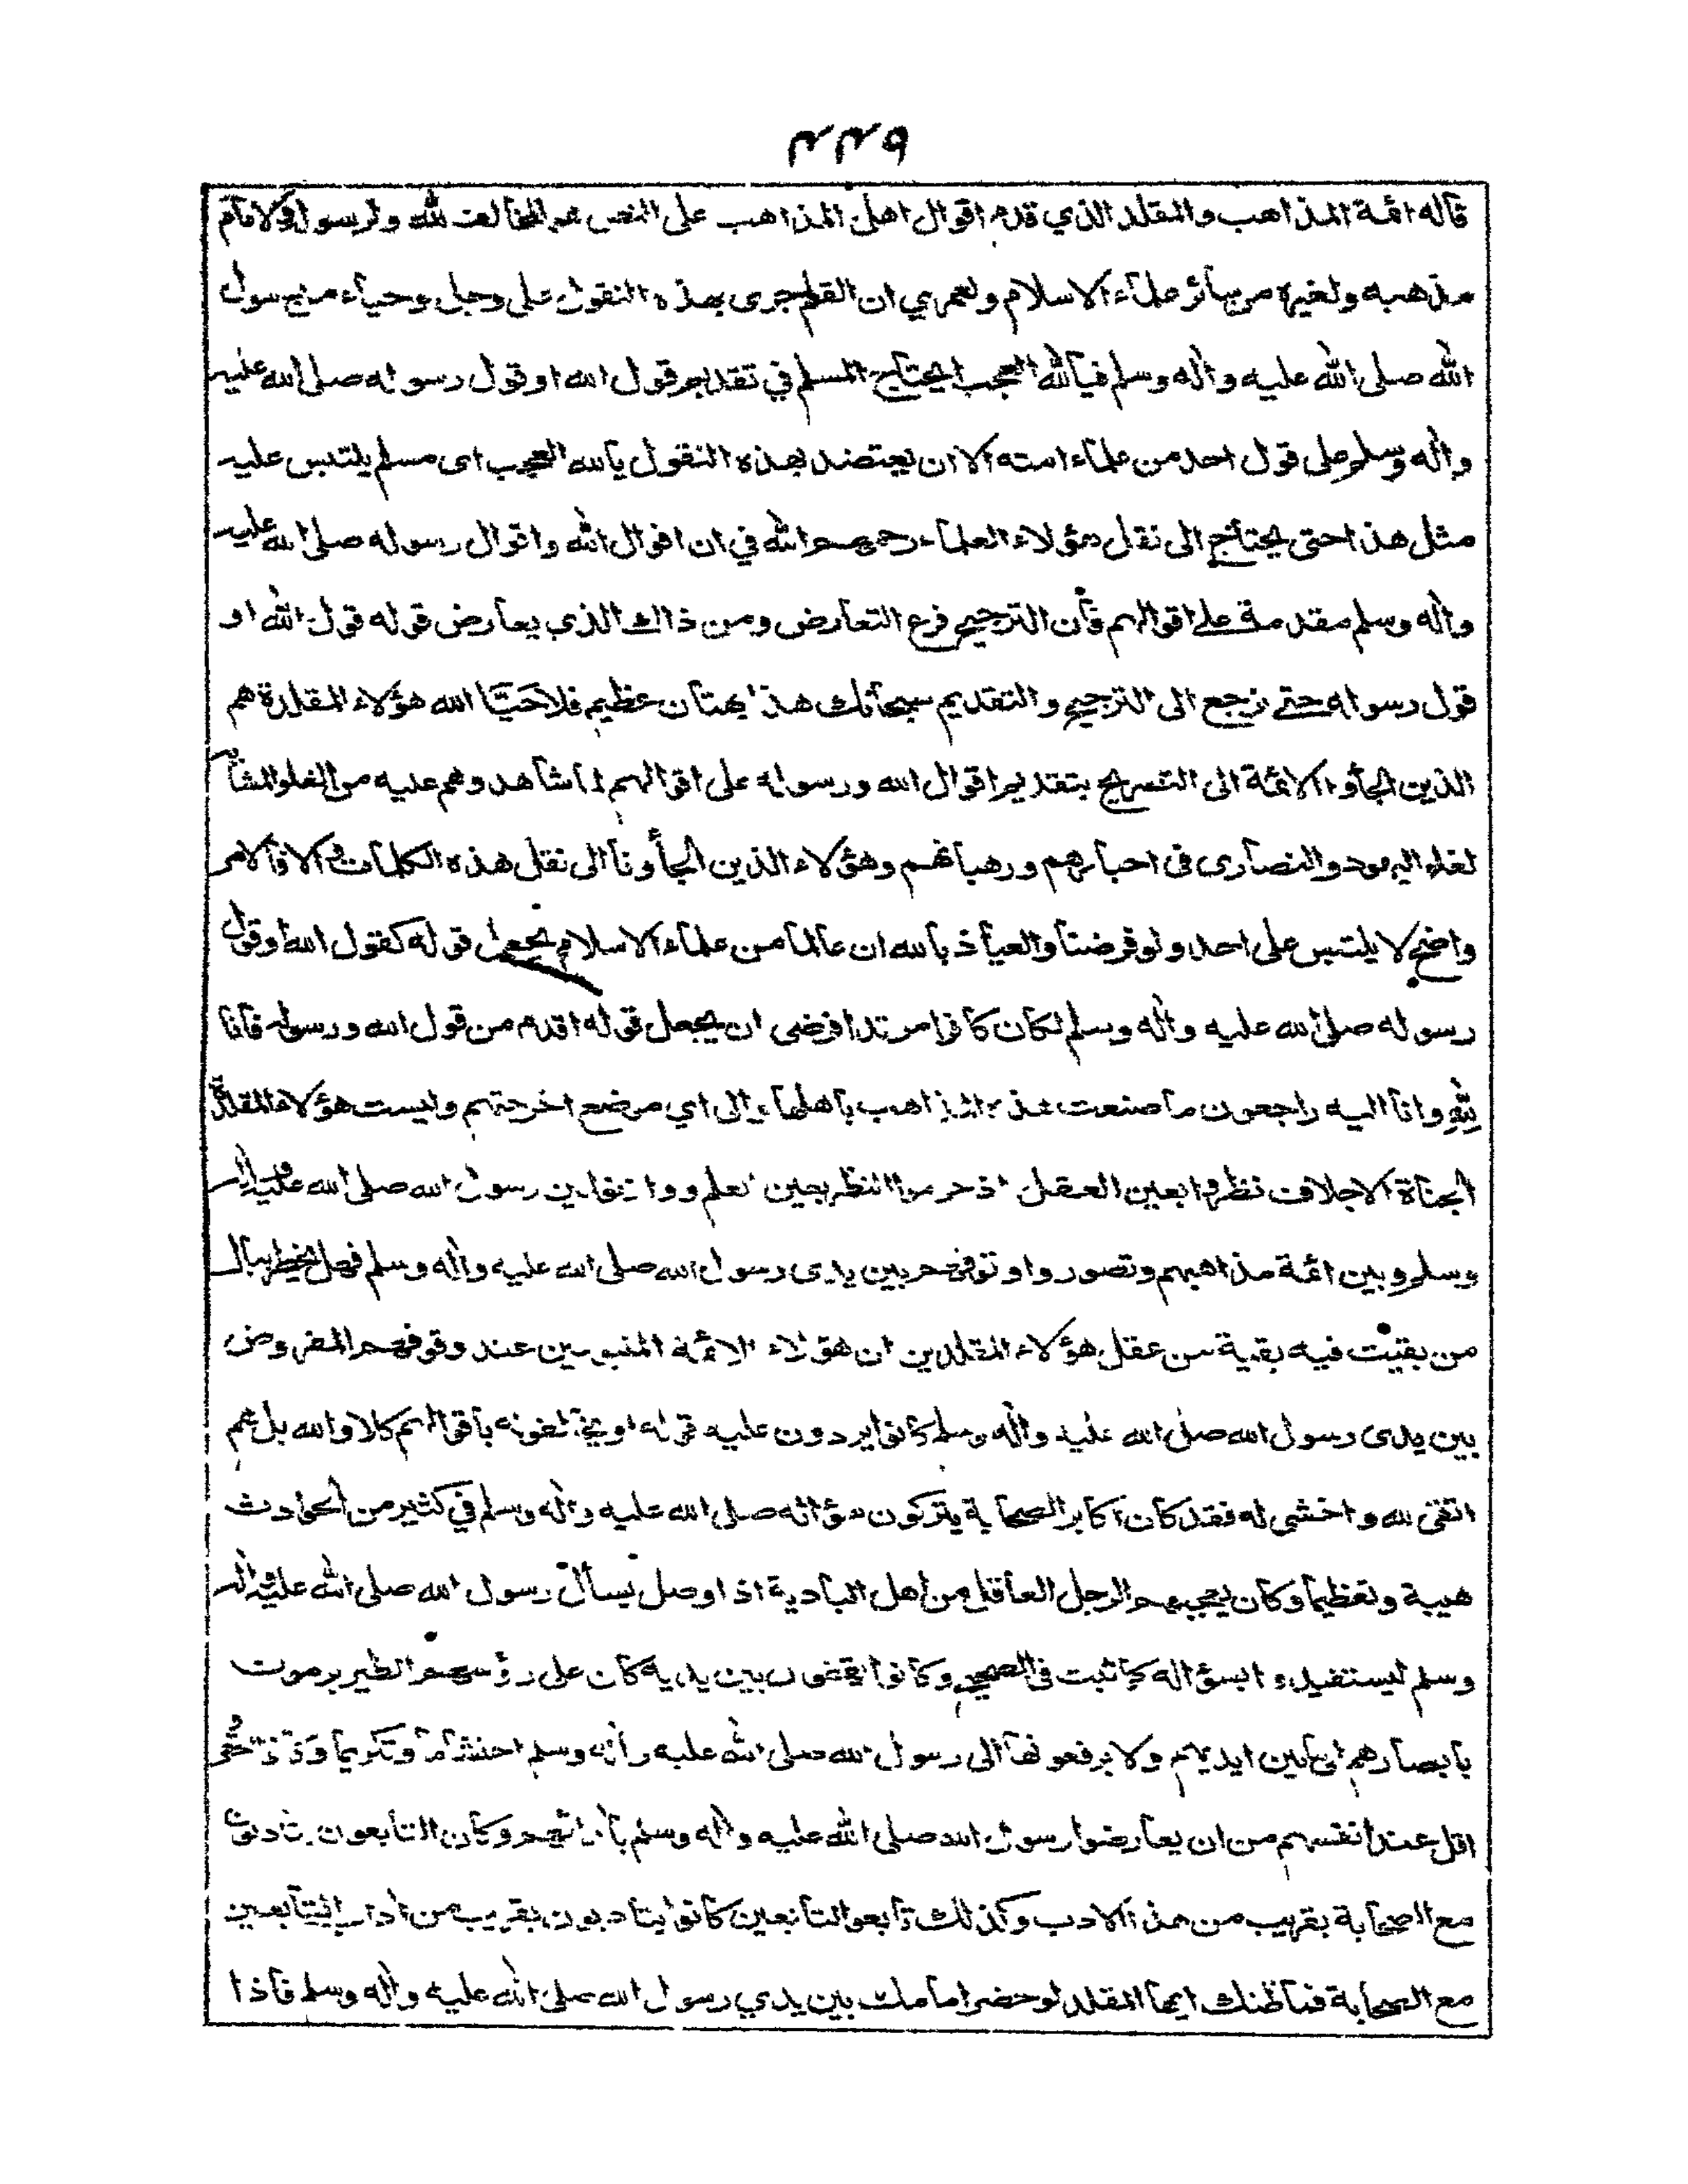 ٢٢٩
قاله ائمة المذاهب والمقلد الذي قدم اقوال اهل المذاهب على النص هو المخالف لله ولرسوله ولامام
مذهبه ولغيره من سائر علماء الاسلام ولعمري ان القلم جرى بهذه النقول على وجل وحياء من رسول
الله صلى الله عليه واله وسلم فيالله العجب ايحتاج المسلم في تقديم قول الله او قول رسوله صلى الله عليه
واله وسلم على قول احد من علماء امته الا ان يعتضد بهذه النقول يالله العجب اى مسلم يلتبس عليه
مثل هذا حتى يحتاج الى نقل هؤلاء العلماء رحمهم الله في ان اقوال الله واقوال رسوله صلى الله عليه
واله وسلم مقدمة على اقوالهم فأن الترجيح فرع التعارض ومن ذاك الذي يعارض قوله قول الله او
قول رسوله حتى نرجع الى الترجيح والتقديم سبحانك هذا بهتان عظيم فلا حَيَّا الله هؤلاء المقلدة هم
الذين الجأوا الائمة الى التصريح بتقديم اقوال الله ورسوله على اقوالهم لما شاهدوهم عليه من الغلو المشابه
لغلو اليهود والنصارى فى احبارهم ورهبانهم وهؤلاء الذين الجأونا الى نقل هذه الكلمات والا فالامر
واضح لا يلتبس على احد ولو فرضنا والعياذ بالله ان عالما من علماء الاسلام يجعل قوله كقول الله او قول
رسوله صلى الله عليه واله وسلم لكان كافرا مرتدا فرضى ان يجعل قوله اقدم من قول الله ورسوله فانا
لله وانا اليه راجعون ما صنعت هذه المذاهب باهلها والى اي موضع اخرجتهم وليست هؤلاء المقلدة
الجناة الاجلاف نظروا بعين العقل اذ حرموا النظر بعين العلم ووازنوا بين رسول الله صلى الله عليه واله
وسلم وبين ائمة مذاهبهم وتصوروا وقوفهم بين يدى رسول الله صلى الله عليه واله وسلم فهل يخطر ببال
من بقيت فيه بقية من عقل هؤلاء المقلدين ان هؤلاء الائمة المتبوعين عند وقوفهم المفروض
بين يدى رسول الله صلى الله عليه واله وسلم كانوا يردون عليه قوله او يخالفونه باقوالهم كلا والله بل هم
اتقى لله واخشى له فقد كان اكابر الصحابة يتركون سؤاله صلى الله عليه واله وسلم في كثير من الحوادث
هيبة وتعظيما وكان يعجبهم الرجل العاقل من اهل البادية اذا وصل يسأل رسول الله صلى الله عليه واله
وسلم ليستفيدوا بسؤاله كما ثبت فى الصحيح وكانوا يقفون بين يديه كان على رؤسهم الطير يرمون
بابصارهم الى ما بين ايديهم ولا يرفعونها الى رسول الله صلى الله عليه واله وسلم احتشاما وتكريما
اقل عند انفسهم من ان يعارضوا رسول الله صلى الله عليه واله وسلم بآرائهم وكان التابعون يتادبون
مع الصحابة بقريب من هذا الادب وكذلك تابعو التابعين كانوا يتادبون بقريب من اداب التابعين
مع الصحابة فما ظنك ايها المقلد لو حضر امامك بين يدي رسول الله صلى الله عليه واله وسلم فاذا